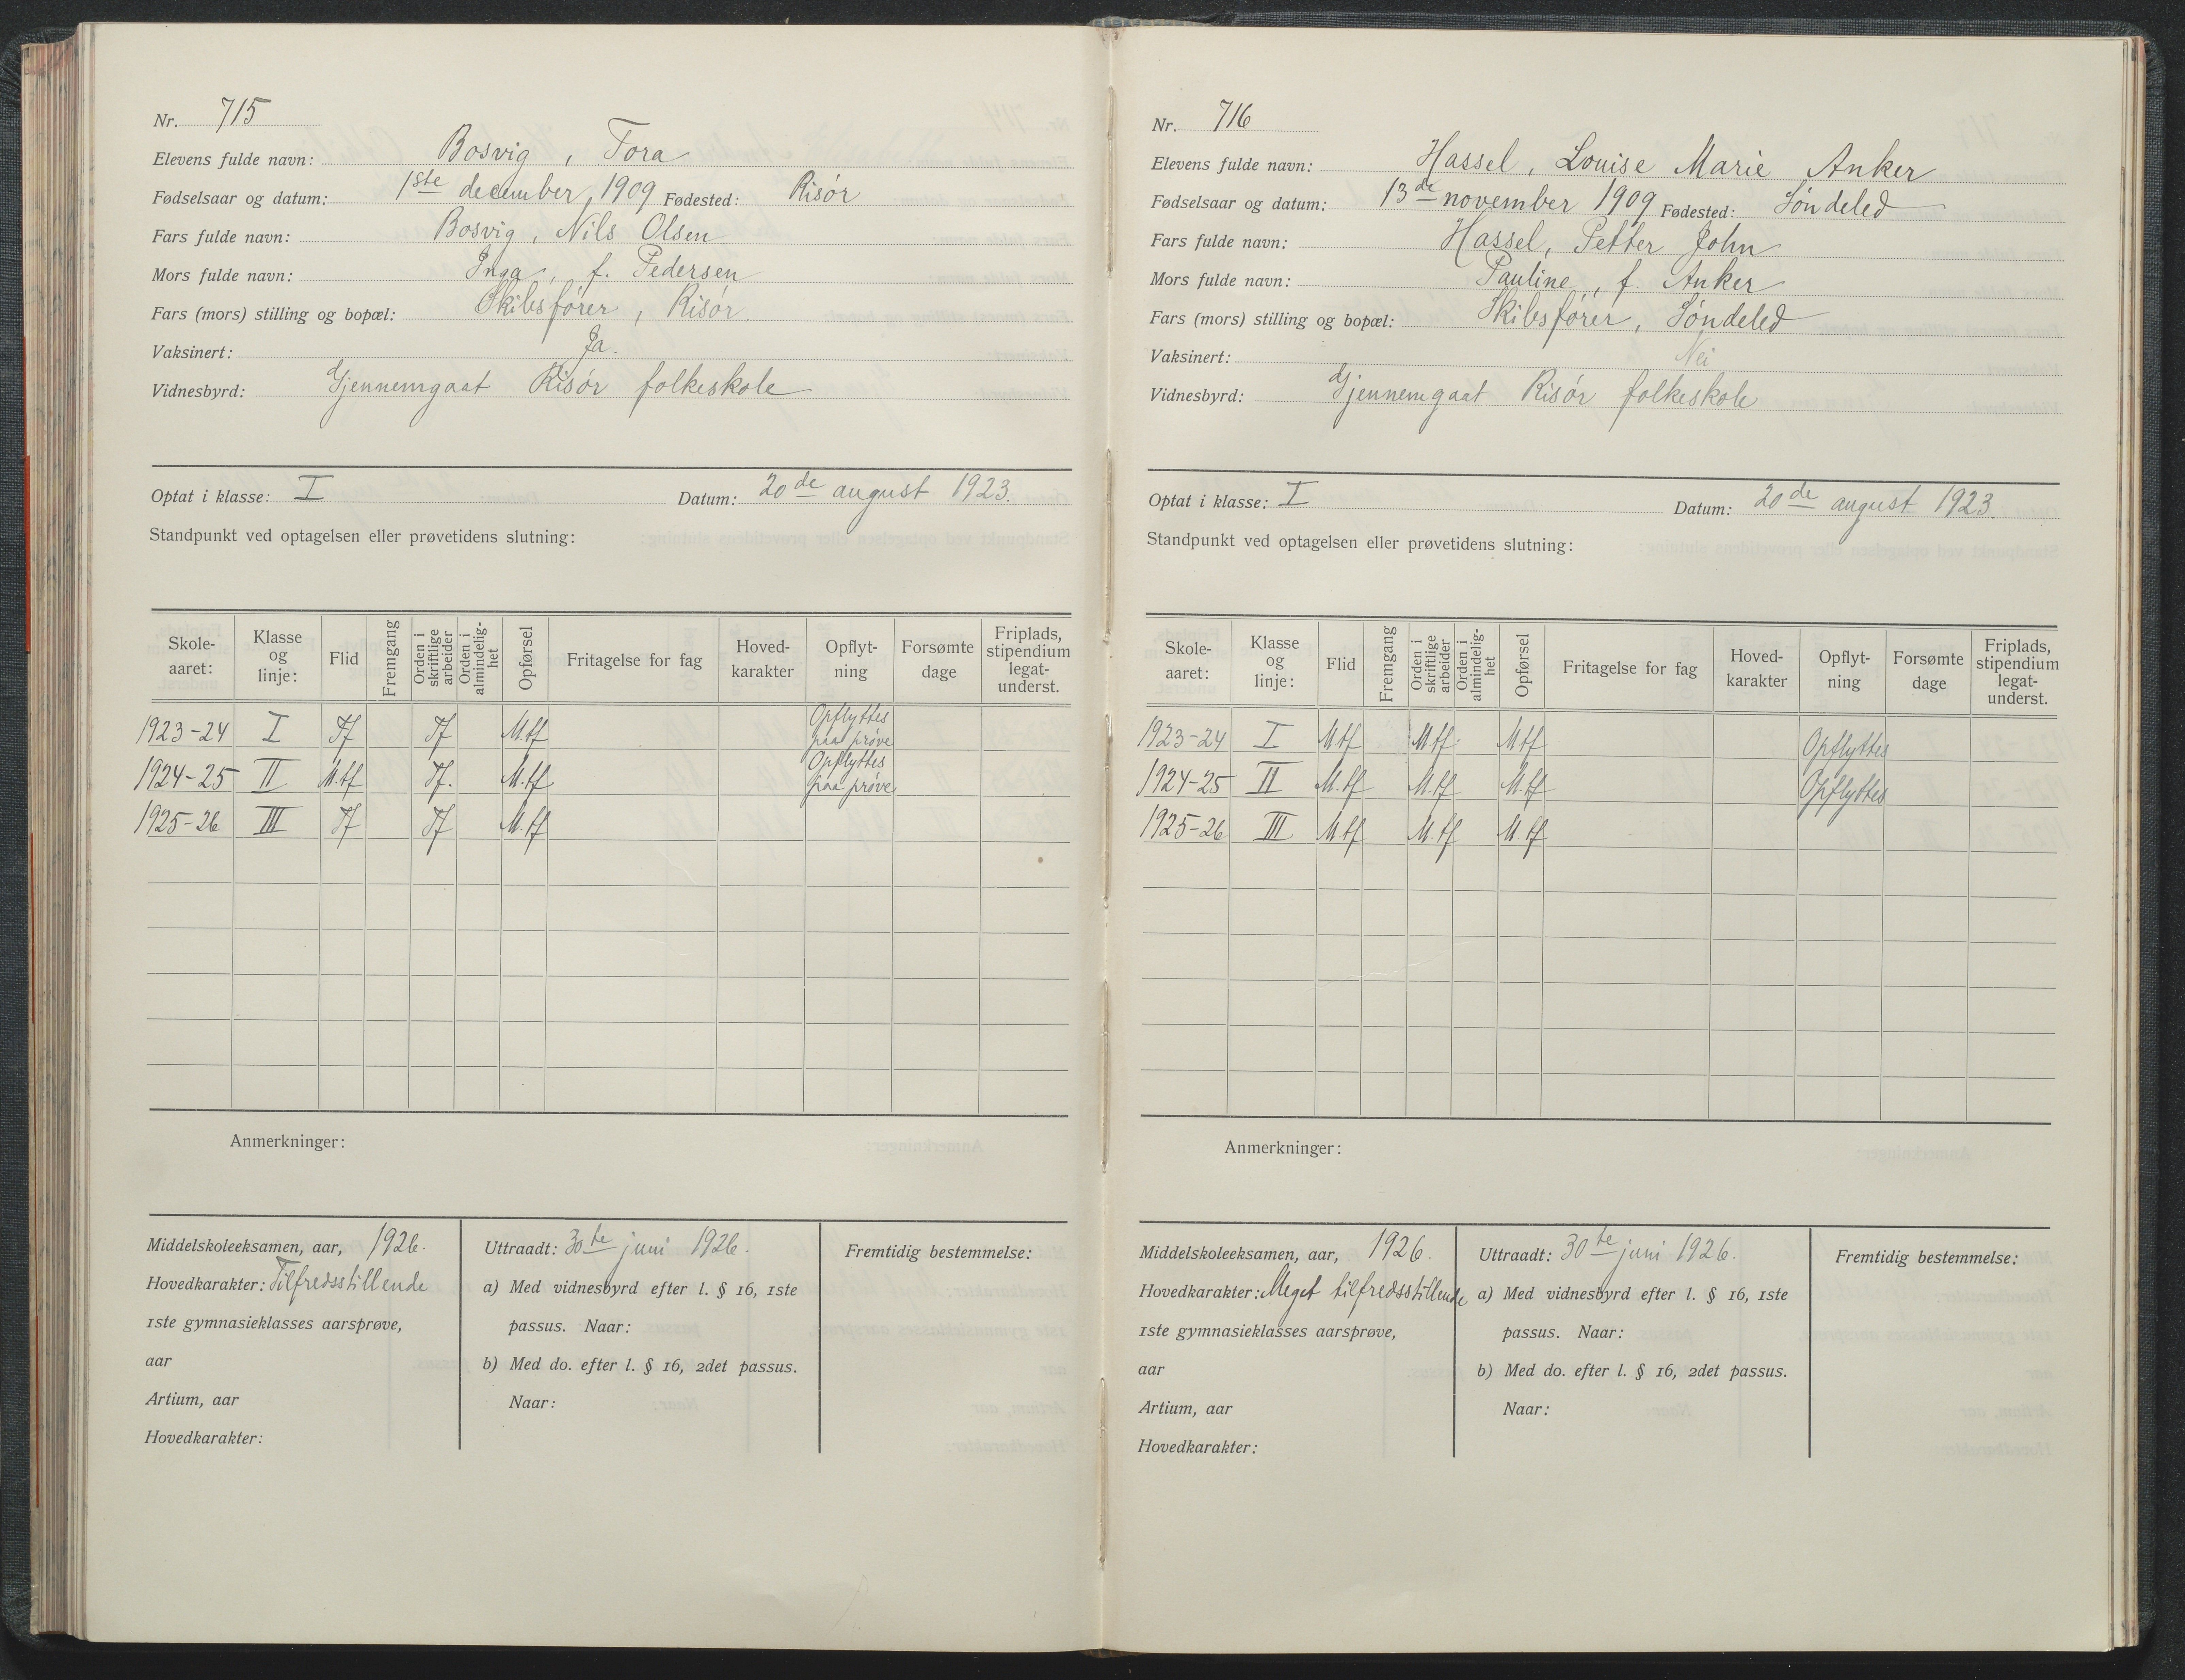 Nr. 715
Elevens fulde navn: Bosvig, Tora
Fødselsaar og datum: 1ste december 1909 Fødested: Risør
Fars fulde navn: Bosvig, Nils Olsen
Mors fulde navn: Inga, f. Pedersen
Fars (mors) stilling og bopæl: Skibsfører, Risør.
Vaksinert: Ja.
Vidnesbyrd: Gjennemgaat Risør folkeskole
Optat i klasse: I Datum: 20de august 1923.
Standpunkt ved optagelsen eller prøvetidens slutning:
Skole-aaret: Klasse og linje: Flid Fremgang Orden i skriftlige arbeider Orden i almindelig-het Opførsel Fritagelse for fag Hoved-karakter Opflyt-ning Forsømte dage Friplads, stipendium legat-underst.
1923-24 I Tf Tf M.tf Opflyttes paa prøve
1924-25 II M.tf Tf. M.tf Opflyttes paa prøve
1925-26 III Tf Tf M.tf
Anmerkninger:
Middelskoleeksamen, aar, 1926.
Hovedkarakter: Tilfredsstillende
1ste gymnasieklasses aarsprøve,
aar
Artium, aar
Hovedkarakter:
Uttraadt: 30te juni 1926.
a) Med vidnesbyrd efter l. § 16, 1ste
passus. Naar:
b) Med do. efter l. § 16, 2det passus.
Naar:
Fremtidig bestemmelse:
Nr. 716
Elevens fulde navn: Hassel, Louise Marie Anker
Fødselsaar og datum: 13de november 1909 Fødested: Søndeled
Fars fulde navn: Hassel, Petter John
Mors fulde navn: Pauline, f. Anker
Fars (mors) stilling og bopæl: Skibsfører, Søndeled
Vaksinert: Nei
Vidnesbyrd: Gjennemgaat Risør folkeskole
Optat i klasse: I Datum: 20de august 1923.
Standpunkt ved optagelsen eller prøvetidens slutning:
Skole-aaret: Klasse og linje: Flid Fremgang Orden i skriftlige arbeider Orden i almindelig-het Opførsel Fritagelse for fag Hoved-karakter Opflyt-ning Forsømte dage Friplads, stipendium legat-underst.
1923-24 I Mtf M.tf. Mtf Opflyttes
1924-25 II M.tf M.tf M.tf Opflyttes
1925-26 III M.tf M.tf M.tf
Anmerkninger:
Middelskoleeksamen, aar, 1926.
Hovedkarakter: Meget tilfredsstillende
1ste gymnasieklasses aarsprøve,
aar
Artium, aar
Hovedkarakter:
Uttraadt: 30te juni 1926.
a) Med vidnesbyrd efter l. § 16, 1ste
passus. Naar:
b) Med do. efter l. § 16, 2det passus.
Naar:
Fremtidig bestemmelse: